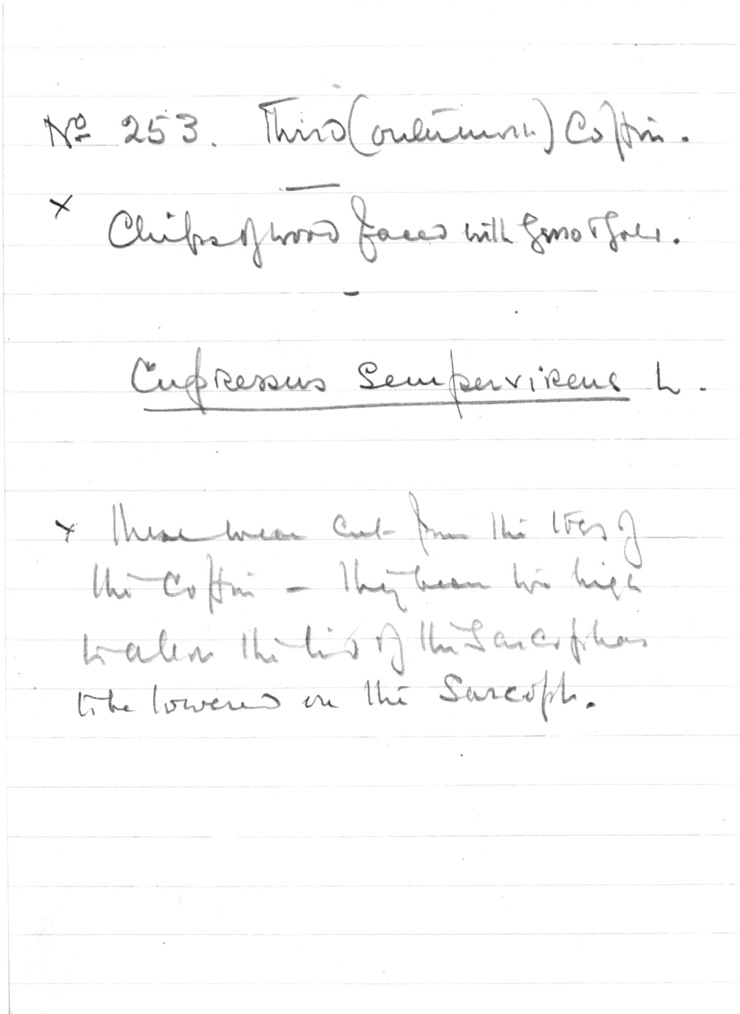 No 253. Third (outermost) Coffin.
x
Chips of wood faced with gesso & gold.
Cupressus sempervirens L.
x These were cut from the toes of
the Coffin – they were too high
to allow the lid of the Sarcophas
to be lowered on the Sarcoph.